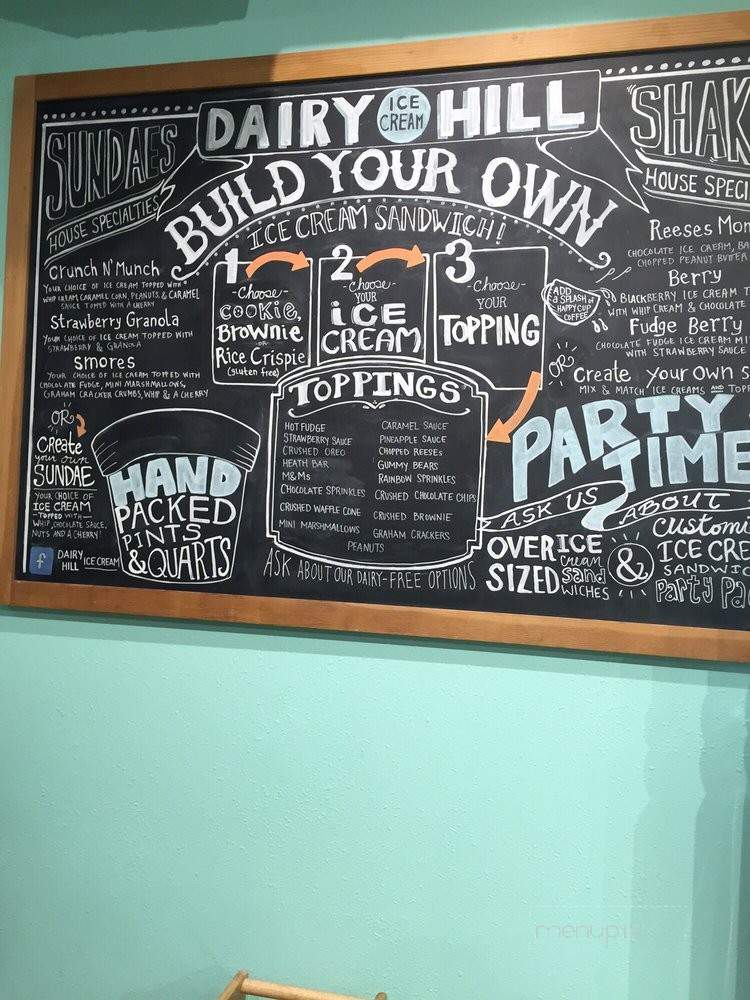 DAIRY ICE CREAM HILL
BUILD YOUR OWN
ICE CREAM SANDWICH!
SUNDAES
HOUSE SPECIALTIES
Crunch N' Munch
YOUR CHOICE OF ICE CREAM TOPPED WITH
WHIP CREAM, CARAMEL CORN, PEANUTS, & CARAMEL
SAUCE TOPPED WITH A CHERRY
Strawberry Granola
YOUR CHOICE OF ICE CREAM TOPPED WITH
STRAWBERRY & GRANOLA
smores
YOUR CHOICE OF ICE CREAM TOPPED WITH
CHOCOLATE FUDGE, MINI MARSHMALLOWS,
GRAHAM CRACKER CRUMBS, WHIP & A CHERRY
OR
Create
your own
SUNDAE
YOUR CHOICE OF
ICE CREAM
-TOPPED WITH-
WHIP, CHOCOLATE SAUCE,
NUTS AND A CHERRY!
f DAIRY HILL ICE CREAM
HAND
PACKED
PINTS
& QUARTS
1
-Choose-
cookie,
Brownie
or
Rice Crispie
(gluten free)
2
-choose-
YOUR
iCE
CREAM
3
-Choose-
YOUR
TOPPING
TOPPINGS
HOT FUDGE
STRAWBERRY SAUCE
CRUSHED OREO
HEATH BAR
M&Ms
CHOCOLATE SPRINKLES
CRUSHED WAFFLE CONE
MINI MARSHMALLOWS
CARAMEL SAUCE
PINEAPPLE SAUCE
CHOPPED REESES
GUMMY BEARS
RAINBOW SPRINKLES
CRUSHED CHOCOLATE CHIPS
CRUSHED BROWNIE
GRAHAM CRACKERS
PEANUTS
ASK ABOUT OUR DAIRY-FREE OPTIONS
SHAK
HOUSE SPECI
Reeses Mon
CHOCOLATE ICE CREAM, BA
CHOPPED PEANUT BUTTER
Berry
BLACKBERRY ICE CREAM T
WITH WHIP CREAM & CHOCOLATE
Fudge Berry
CHOCOLATE FUDGE ICE CREAM MI
WITH STRAWBERRY SAUCE
ADD
a SPLASH of
HAPPY CUP
COFFEE
OR
Create your own s
MIX & MATCH ICE CREAMS AND TOP
PARTY
TIME
ASK US ABOUT
OVER
SIZED
ICE
cream
sand
WICHES
&
Customi
ICE CRE
SANDWIC
Party Pa
menupix